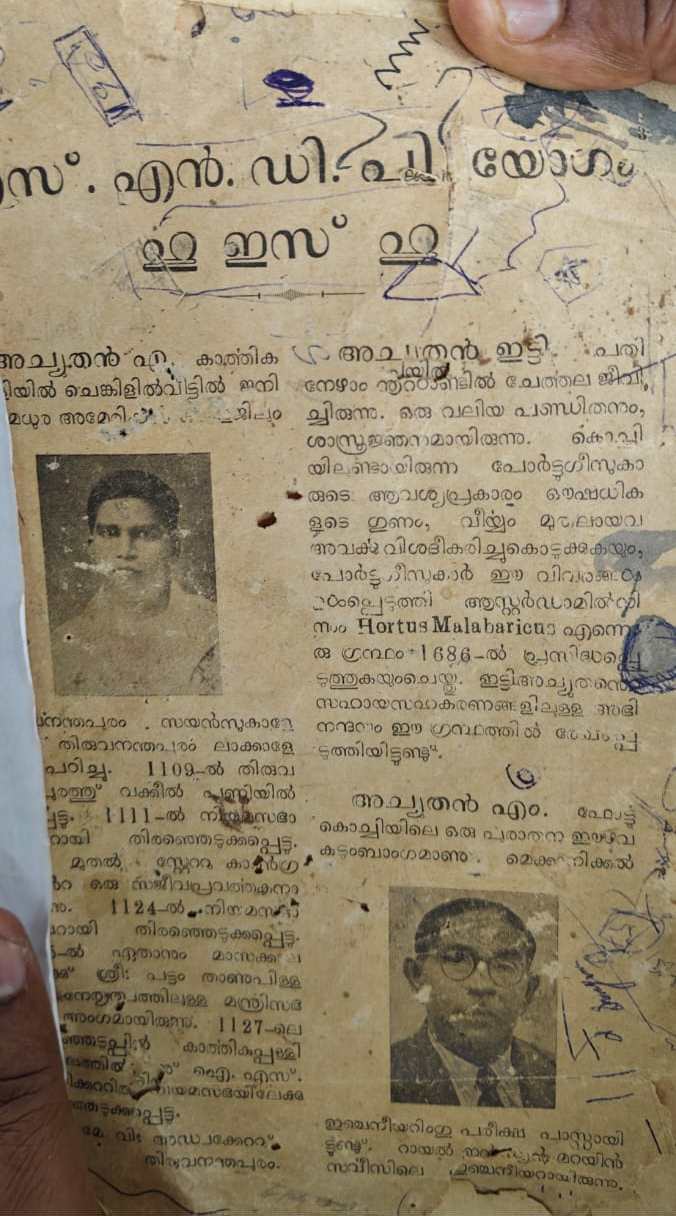 സ്. എൻ. ഡി. പി യോഗം
ഹു ഇസ് ഹു
അച്യുതൻ എ. കാത്തിക
യിൽ ചെങ്കിളിൽവീട്ടിൽ ജനി
മധുര അമേരി
നന്തപുരം സയൻസുകാളേ
തിരുവനന്തപുരം ലാക്കാളേ
പഠിച്ചു. 1109-ൽ തിരുവ
പുരത്തു് വക്കീൽ പണിയിൽ
1111-ൽ നിയമസഭാ
റായി തിരഞ്ഞെടുക്കപ്പെട്ടു.
മുതൽ സ്റ്റേററ കാൺഗ്ര
ഒരു സജീവപ്രവത്തകനാ
1124-ൽ നിയമസഭാ
റായി തിരഞ്ഞെടുക്കപ്പെട്ടു.
ൽ ഏതാനും മാസക്കാല
ശ്രീ: പട്ടം താണുപിള്ള
നേതൃത്വത്തിലുള്ള മന്ത്രിസഭ
അംഗമായിരുന്നു. 1127-ലെ
ഞ്ഞടുപ്പിൽ കാത്തികപ്പള്ളി
ഐ. എസ്.
നിയമസഭയിലേക്കു
തിരുവനന്തപുരം.
അച്യുതൻ, ഇട്ടി. പതി
നേഴാം നൂററാണ്ടിൽ ചേത്തല ജീവി
ച്ചിരുന്നു. ഒരു വലിയ പണ്ഡിതനും,
ശാസ്ത്രജ്ഞനുമായിരുന്നു. കൊച്ചി
യിലുണ്ടായിരുന്ന പോർട്ടുഗീസുകാ
രുടെ ആവശ്യപ്രകാരം ഔഷധിക
ളുടെ ഗുണം, വീയ്യം മുതലായവ
അവക്കു വിശദീകരിച്ചുകൊടുക്കുകയും,
പോർട്ടുഗീസുകാർ ഈ വിവരങ്ങൾ
ആസ്റ്റർഡാമിൽനി
ന്നും Hortus Malabaricus എന്നൊ
രു ഗ്രന്ഥം 1686-ൽ പ്രസിദ്ധപ്പെ
ടുത്തുകയുംചെയ്തു. ഇട്ടിഅച്യുതന്റെ
സഹായസഹകരണങ്ങളിലുള്ള അഭി
നന്ദനം ഈ ഗ്രന്ഥത്തിൽ രേഖപ്പെ
ടുത്തിയിട്ടുണ്ടു്.
അച്യുതൻ എം. ഫോട്ടു
കൊച്ചിയിലെ ഒരു പുരാതന ഈഴവ
കുടുംബാംഗമാണു. മെക്കാനിക്കൽ
ഇഞ്ചിനീയറിംഗു പരീക്ഷ പാസ്സായി
ട്ടുണ്ടു്. റായൽ ഇൻഡ്യൻ മറയിൻ
സവീസിലെ എഞ്ചിനീയറായിരുന്നു.